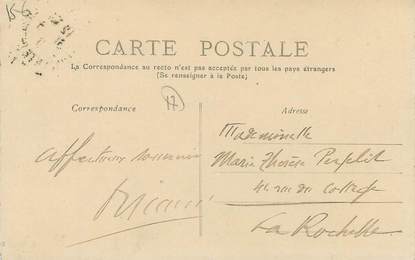 15-6
CARTE POSTALE
La Correspondance au recto n'est pas acceptée par tous les pays étrangers
(Se renseigner à la Poste)
Correspondance
17
Adresse
Mademoiselle
affectueux souvenir
Marie Thérèse
41 rue du collège
La Rochelle